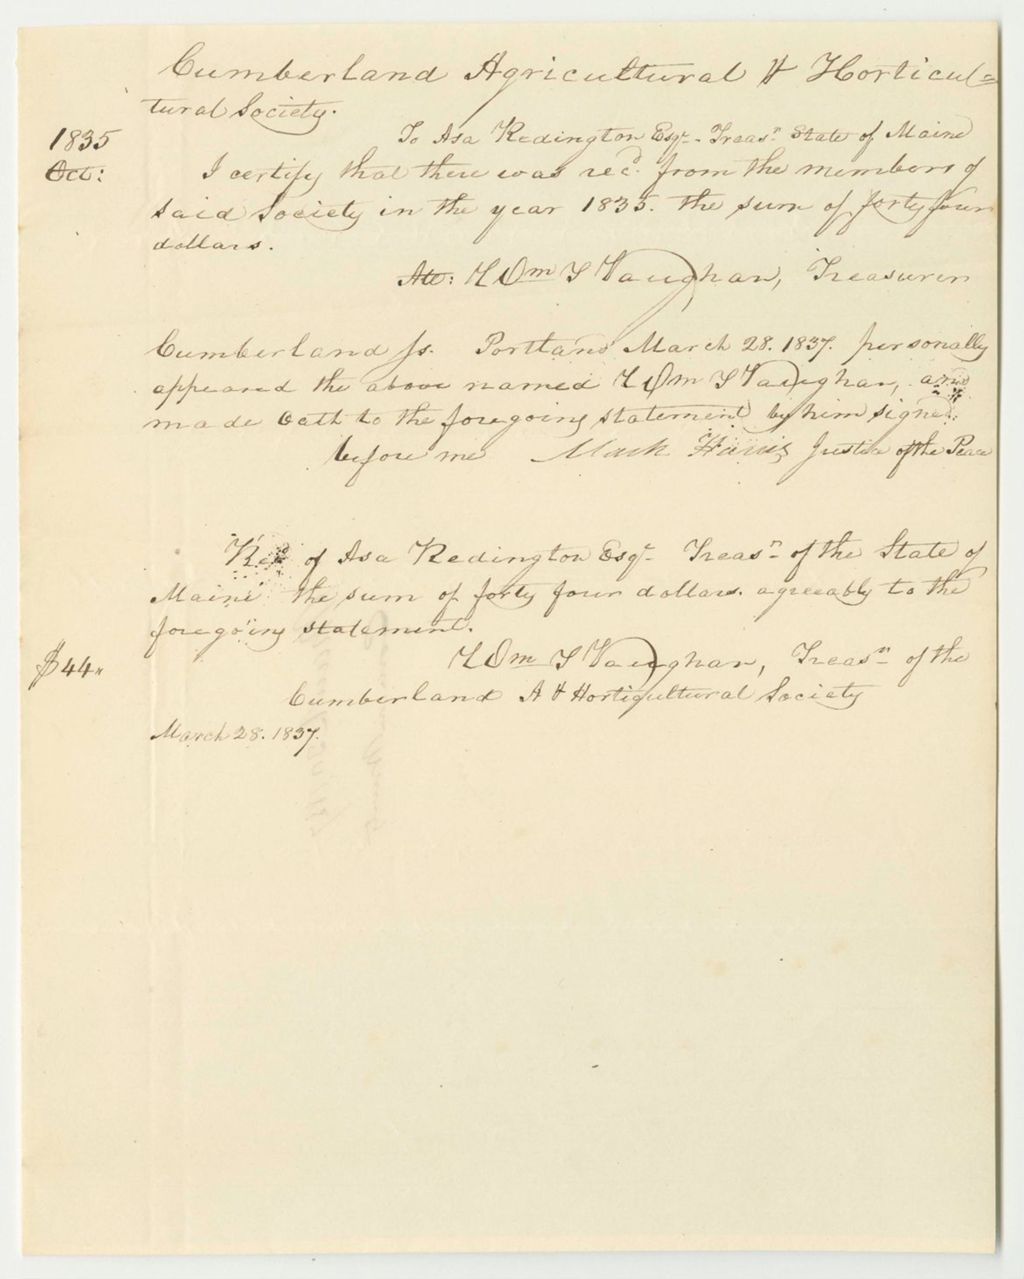 Cumberland Agricultural & Horticul=
tural Society.
1835 To Asa Redington Esqr. Treasr State of Maine
Oct: I certify that there was recd. from the members of
said Society in the year 1835. the sum of forty four
dollars.
Att: Wm S Vaughan, Treasurer
Cumberland Ss. Portland March 28. 1837. personally
appeared the above named Wm S Vaughan, and
made oath to the foregoing statement by him signed.
before me Mark Harris Justice of the Peace
Recd of Asa Redington Esqr Treasr of the State of
Maine the sum of forty four dollars. agreeably to the
foregoing statement.
$44" Wm S Vaughan, Treasr of the
Cumberland A & Horticultural Society
March 28. 1837.